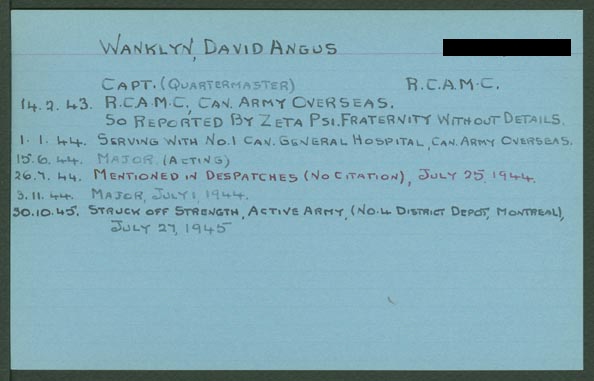 WANKLYN, DAVID ANGUS
CAPT. (QUARTERMASTER) R.C.A.M.C.
14.2.43. R.C.A.M.C., CAN. ARMY OVERSEAS.
SO REPORTED BY ZETA PSI. FRATERNITY WITHOUT DETAILS.
1.1.44. SERVING WITH NO.1 CAN. GENERAL HOSPITAL, CAN. ARMY OVERSEAS.
15.6.44. MAJOR. (ACTING)
26.7.44. MENTIONED IN DESPATCHES (NO CITATION), JULY 25, 1944.
3.11.44. MAJOR, JULY 1, 1944.
30.10.45. STRUCK OFF STRENGTH, ACTIVE ARMY, (NO.4 DISTRICT DEPOT, MONTREAL),
JULY 27, 1945